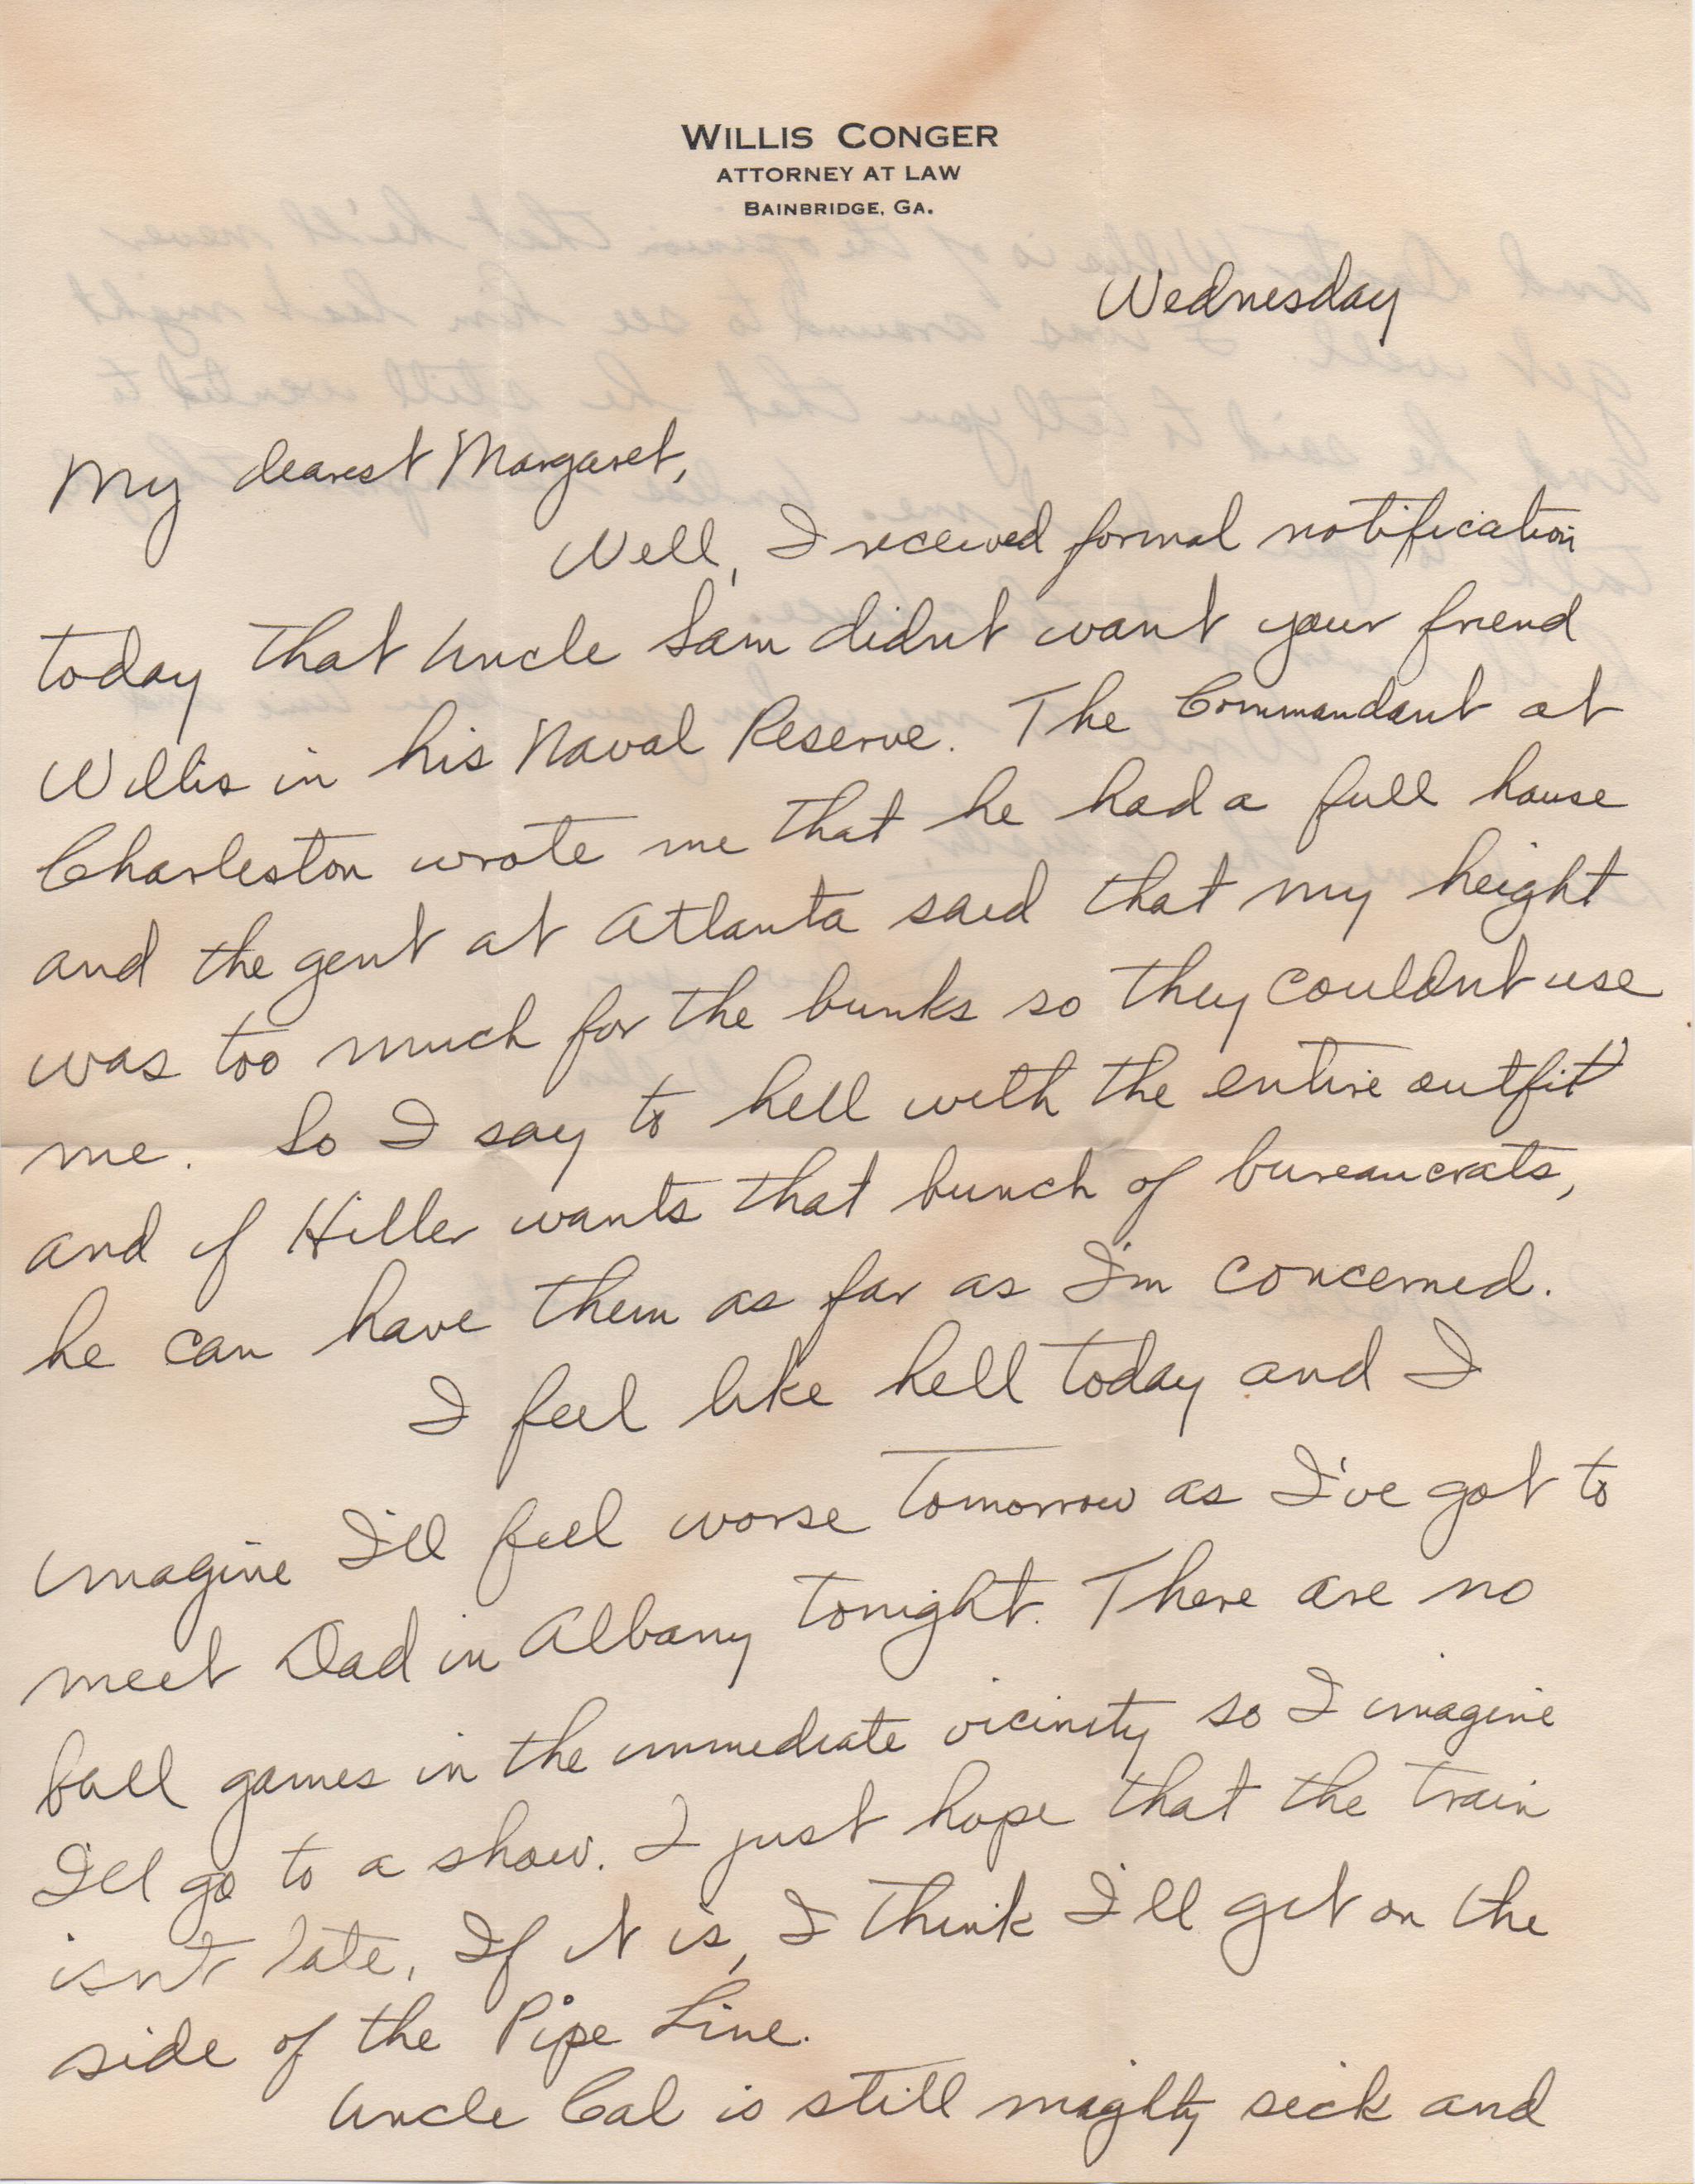 WILLIS CONGER
ATTORNEY AT LAW
BAINBRIDGE, GA.
Wednesday
My dearest Margaret,
Well, I received formal notification
today that Uncle Sam didnt want your friend
Willis in his Naval Reserve. The Commandant at
Charleston wrote me that he had a full house
and the gent at Atlanta said that my height
was too much for the bunks so they couldnt use
me. So I say to hell with the entire outfit
and if Hitler wants that bunch of bureaucrats,
he can have them as far as I'm concerned.
I feel like hell today and I
imagine I'll feel worse tomorrow as I've got to
meet Dad in Albany tonight. There are no
ball games in the immediate vicinity so I imagine
I'll go to a show. I just hope that the train
isn't late. If it is, I think I'll get on the
side of the Pipe Line.
Uncle Cal is still mighty sick and